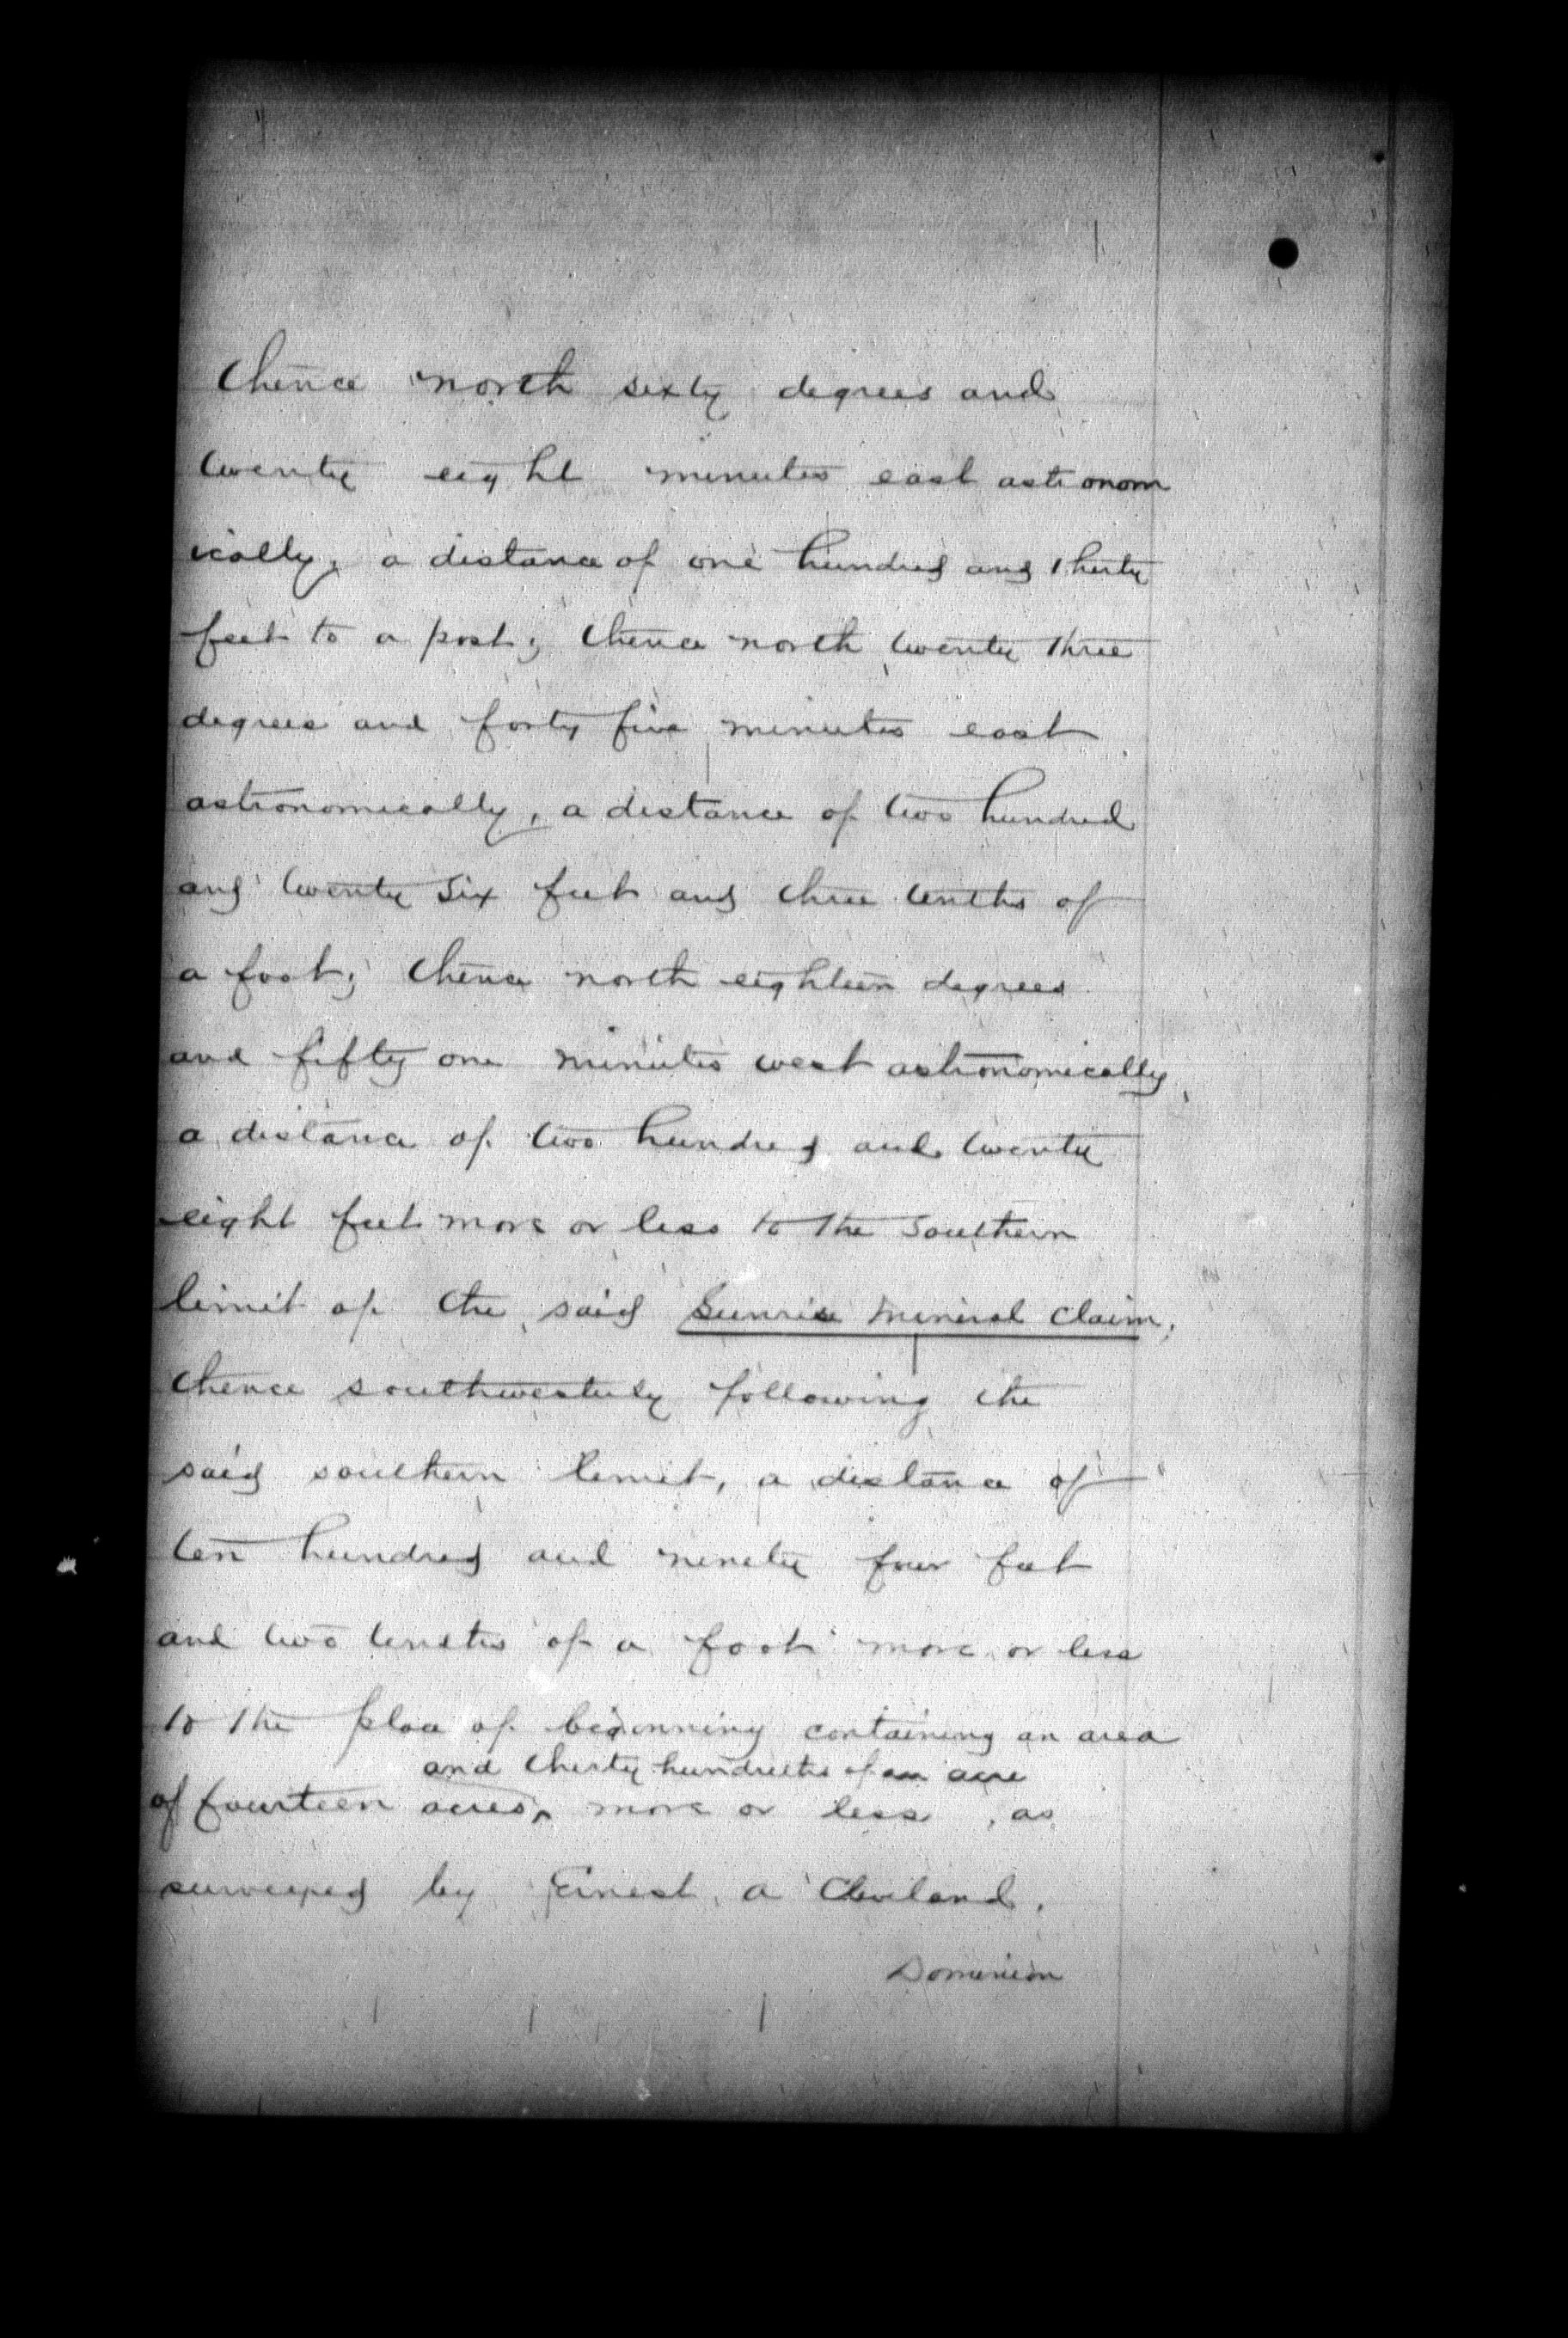 thence north sixty degrees and
twenty eight minutes east astronom
ically, a distance of one hundred and thirty
feet to a post; thence north twenty three
degrees and forty five minutes east
astronomically, a distance of two hundred
and twenty six feet and three tenths of
a foot; thence north eighteen degrees
and fifty one minutes west astronomically,
a distance of two hundred and twenty
eight feet more or less to the southern
limit of the said Sunrise Mineral Claim;
thence southwesterly following the
said southern limit, a distance of
ten hundred and ninety four feet
and two tenths of a foot more or less
to the place of beginning containing an area
and thirty hundredths of an acre
of fourteen acres, more or less, as
surveyed by Ernest A Cleveland,
Dominion